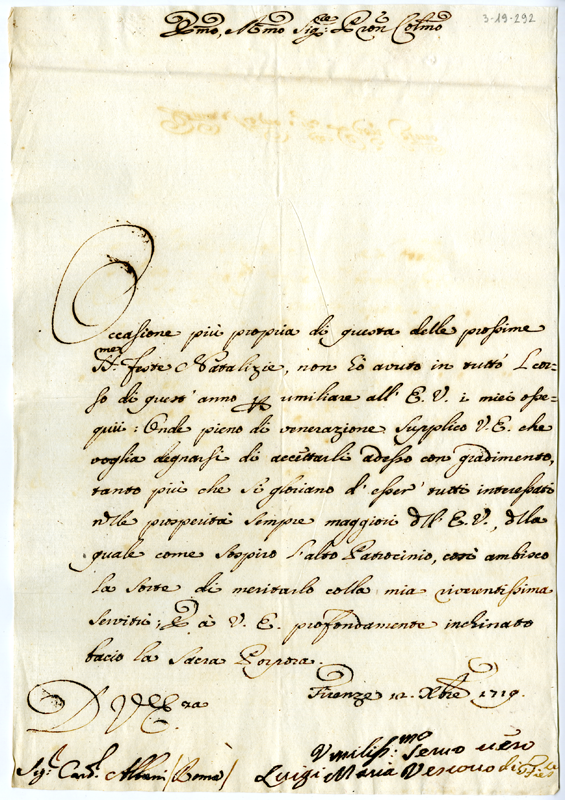 3-19-292
Emo, Rmo Sig:re Pron Colmo
Occasione più propria di questa delle prossime
SSme feste Natalizie, non hò avuto in tutto l'cor-
so di quest'anno p umiliare all'E. V. i miei osse-
quii: Onde pieno di venerazione supplico V. E. che
voglia degnarsi di accettarli adesso con gradimento,
tanto più che si gloriano d'esser' tutti interessati
nelle prosperità sempre maggiori dll'E. V., dlla
quale come sospiro l'alto Patrocinio, così ambisco
la sorte di meritarlo colla mia riverentissima
servitù; E à V. E. profondamente inchinato
bacio la Sacra Porpora.
Firenze 12. Xbre 1719.
D V. Era
Umiliss:mo Servo vero
Sig.r Card.l Albani (Roma)
Luigi Maria Vescovo di